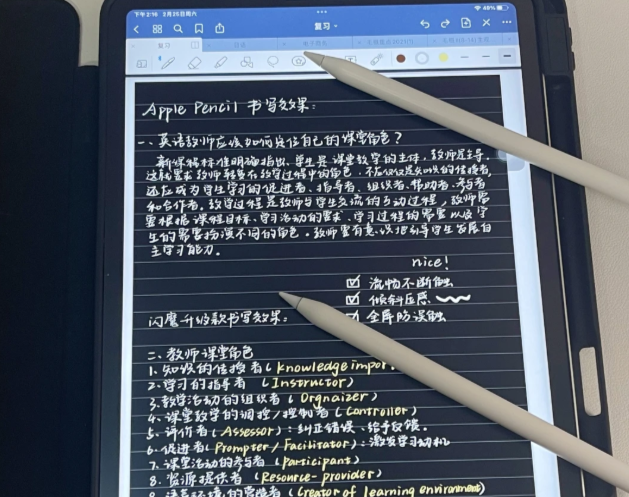 下午2:16 2月25日周六
48%
复习
复习
Apple Pencil 书写效果:
一、英语教师应该如何定位自己的课堂角色?
新课程标准明确指出,学生是课堂教学的主体,教师是主导。
这就要求教师转变在教学过程中的角色,不应仅仅是知识的传授者,
还应成为学生学习的促进者、指导者、组织者、帮助者、参与者
和合作者。教学过程是教师与学生交流的互动过程,教师需
要根据课程目标、学习活动的要求、学习过程的需要以及学
生的需要扮演不同的角色。教师要有意识地引导学生发展自
主学习能力。
nice!
☑ 流畅不断触
☑ 倾斜压感
闪魔升级款书写效果: ☑ 全屏防误触
二、教师课堂角色
1.知识的传授者(knowledge impor
2.学习的指导者 (Instructor)
3.教学活动的组织者(Orgnaizer)
4.课堂教学的调控/控制者(Controller)
5.评价者(Assessor):纠正错误、给予反馈。
6.促进者(Prompter/Facilitator):激发学习动机
7.课堂活动的参与者(Participant)
8.资源提供者(Resource-provider)
9.语言环境的营造者(Creator of learning environment)